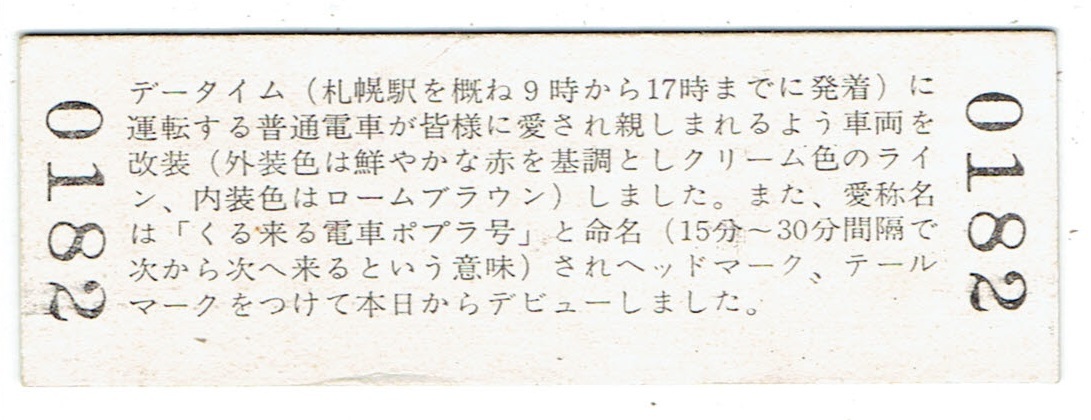 0182
データイム（札幌駅を概ね9時から17時までに発着）に
運転する普通電車が皆様に愛され親しまれるよう車両を
改装（外装色は鮮やかな赤を基調としクリーム色のライ
ン、内装色はロームブラウン）しました。また、愛称名
は「くる来る電車ポプラ号」と命名（15分～30分間隔で
次から次へ来るという意味）されヘッドマーク、テール
マークをつけて本日からデビューしました。
0182